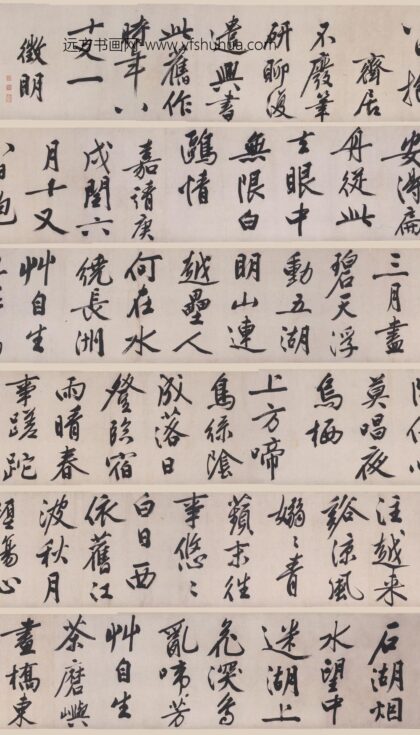 石湖烟
水望中
迷湖上
花深鸟
亂啼芳
艸自生
茶磨嶼
畫橋東
注越来
谿涼風
嫋〻青
蘋末往
事悠〻
白日西
依舊江
波秋月
墮傷心
莫唱夜
烏栖
上方啼
鳥綠陰
成落日
登臨宿
雨晴春
事蹉跎
三月盡
碧天浮
動五湖
明山連
越壘人
何在水
繞長洲
艸自生
安得扁
舟從此
去眼中
無限白
鷗情
嘉靖庚
戌閏六
月十又
齋居
不廢筆
研聊復
遣興書
此舊作
時年八
十又一
徵明
远方书画网 www.yfshuhua.com